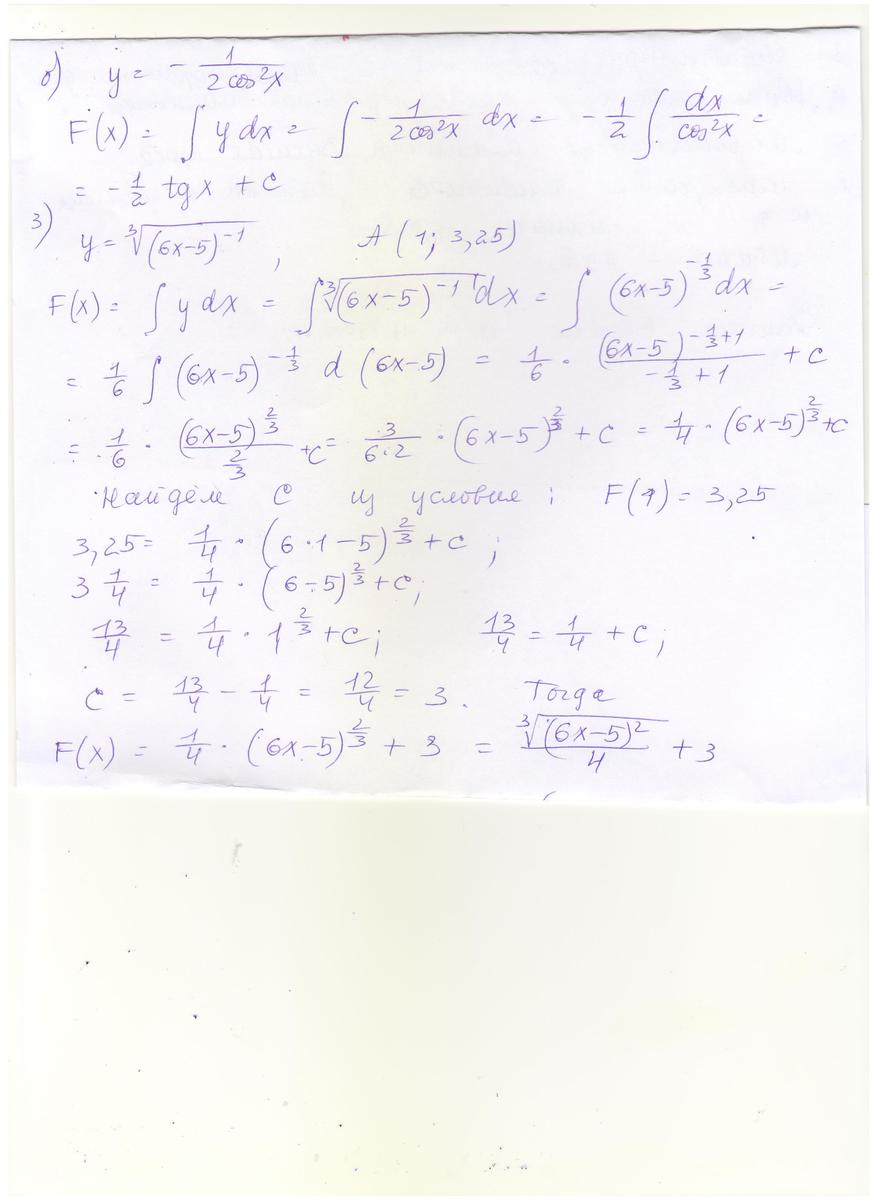 б) y = - 1/(2cos²x)
F(x) = ∫ y dx = ∫ - 1/(2cos²x) dx = - 1/2 ∫ dx/cos²x =
= - 1/2 tg x + C
3) y = ∛((6x-5)⁻¹) , A (1; 3,25)
F(x) = ∫ y dx = ∫ ∛((6x-5)⁻¹) dx = ∫ (6x-5)^(-1/3) dx =
= 1/6 ∫ (6x-5)^(-1/3) d (6x-5) = 1/6 · (6x-5)^(-1/3+1)/(-1/3+1) + C
= 1/6 · (6x-5)^(2/3)/(2/3) + C = 3/(6·2) · (6x-5)^(2/3) + C = 1/4 · (6x-5)^(2/3) + C
Найдём C из условия: F(1) = 3,25
3,25 = 1/4 · (6·1-5)^(2/3) + C ;
3 1/4 = 1/4 · (6-5)^(2/3) + C;
13/4 = 1/4 · 1^(2/3) + C; 13/4 = 1/4 + C;
C = 13/4 - 1/4 = 12/4 = 3. Тогда
F(x) = 1/4 · (6x-5)^(2/3) + 3 = ∛((6x-5)²)/4 + 3